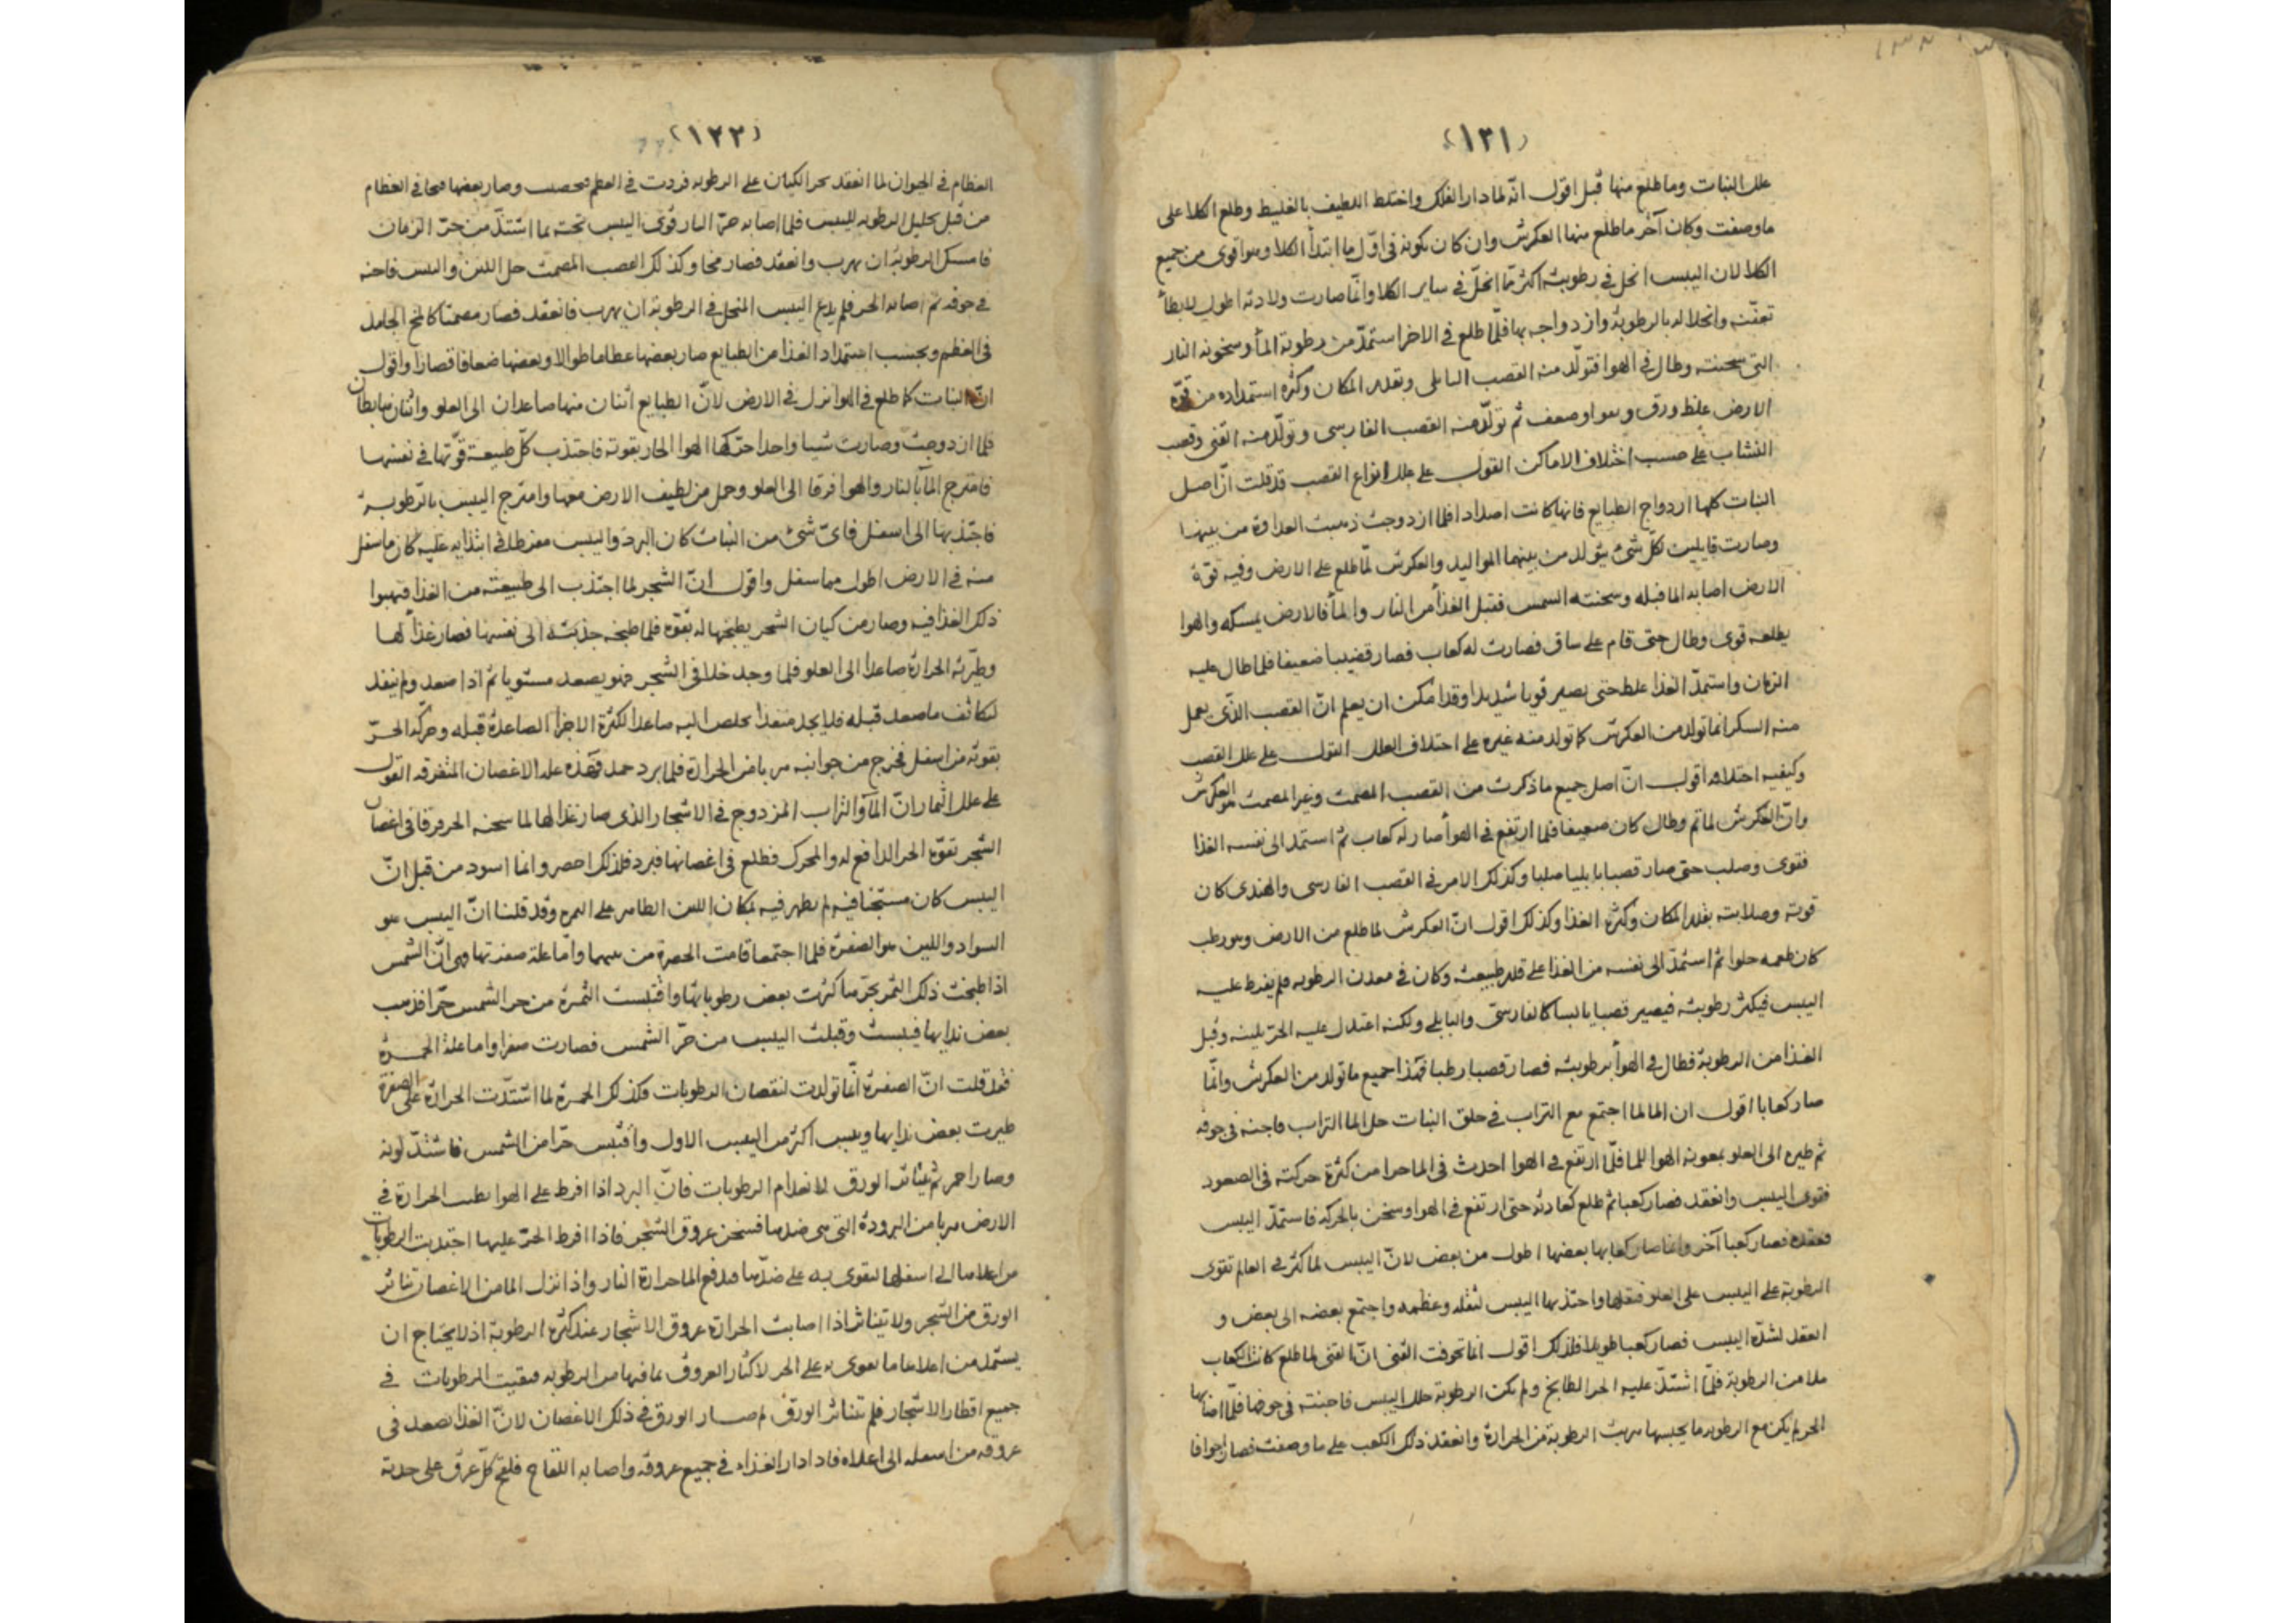 (١٣١)
علل النبات وما طلع منها قبل اقول انّه لما دار الفلك واختلط اللطيف بالغليظ وطلع الكلا على
ما وصفت وكان آخر ما طلع منها العكرش وان كان تكونه فى اوّل ما ابتدأ الكلا وهو اقوى من جميع
الكلا لان اليبس انحل فى رطوبته اكثر مما انحلّ فى ساير الكلا وانّما صارت ولادته اطول لابطأ
تعفّنه وانحلاله بالرطوبة وازدواجه بها فلمّا طلع فى الاخر استمدّ من رطوبة المأ وسخونه النار
التى سخنته وطال فى الهوا فتولّد منه القصب البابلى وبقدر المكان وكثره استمداده من قوّة
الارض غلظ ورق وهوا وضعف ثم تولّد منه القصب الفارسى وتولّد منه القنى وقصب
النشاب على حسب اختلاف الاماكن القول على علل انواع القصب قد قلت انّ اصل
النبات كلها ازدواج الطبايع فانها كانت اضدادا فلما ازدوجت ذهبت العداوة من بينها
وصارت قابلين لكلّ شئ يتولد من بينهما المواليد والعكرش لمّا طلع على الارض وفيه قوّة
الارض اصابه الما فبله وسخنته الشمس فقبل الغذأ من النار والمأ فالارض يمسكه والهوا
يطلعه قوى وطال حتى قام على ساق فصارت له كعاب فصار قضيبا ضعيفا فلما طال عليه
الزمان واستمدّ الغذا غلظ حتى يصير قويا شديدا وقد امكن ان يعلم انّ القصب الذّى يعمل
منه السكر انما تولد من العكرش كما تولد منه غيره على اختلاف العلل القول على علل القصب
وكيفيه اختلافه اقول انّ اصل جميع ما ذكرت من القصب المصمت وغير المصمت هو العكرش
وانّ العكرش لما تم وطال كان ضعيفا فلما ارتفع فى الهوأ صار له كعاب ثم استمد الى نفسه الغذا
فقوى وصلب حتى صار قصبا بابليا صلبا وكذلك الامر فى القصب الفارسى والهندى كان
قوته وصلابته بقدر المكان وكثرة الغذا وكذلك اقول انّ العكرش لما طلع من الارض وهو رطب
كان طعمه حلوا ثم استمدّ الى نفسه من الغذا على قدر طبيعته وكان فى معدن الرطوبه فلم يفرط عليه
اليبس فيكثر رطوبته فيصير قصبا يابسا كالفارسىّ والبابلى ولكنه اعتدل عليه الحرّ بلينه وقبل
الغذا من الرطوبة فطال فى الهوأ برطوبته فصار قصبا رطبا فهذا جميع ما تولد من العكرش وانّما
صار كعابا اقول ان الما لما اجتمع مع التراب فى خلق النبات حل الما التراب فاجنه فى جوفه
ثم طيره الى العلو بمعونه الهوا للما فلمّا ارتفع فى الهوا احدث فى الما حرا من كثرة حركته فى الصعود
فقوى اليبس وانعقد فصار كعبا ثم طلع كعادته حتى ارتفع فى الهوا وسخن بالحركه فاستمدّ اليبس
فعقده فصار كعبا آخر وانما صار كعابها بعضها اطول من بعض لانّ اليبس لما كثر فى العالم تقوى
الرطوبة على اليبس على العلو فثقلها واجتذبها اليبس لثقله وعظمه واجتمع بعضه الى بعض و
انعقد لشدّة اليبس فصار كعبا طويلا فلذلك اقول انما تجوفت القنى انّ القنى لما طلع كانت الكعاب
ملا من الرطوبة فلمّا اشتدّ عليه الحر الطابخ ولم تكن الرطوبة حللت اليبس فاجنته فى جوفها فلمّا اصابها
الحر لم يكن مع الرطوبه ما يحبسها هربت الرطوبة من الحرارة وانعقد ذلك الكعب على ما وصفت فصار اجوافا
(١٣٢)
العظام فى الحيوان لما انعقد بحر الكيان على الرطوبه فردت فى العظم وصار بعضها مخا فى العظام
من قبل تحليل الرطوبه لليبس فلما اصابه حرّ النار قوى اليبس تحته بما اشتدّ من حرّ الزمان
فامسك الرطوبة ان يهرب وانعقد فصار مخا وكذلك القصب المصمت حل اللين واليبس فاجنه
فى جوفه ثم اصابه الحر فلم يدع اليبس المنحل فى الرطوبة ان يهرب فانعقد فصار مصمتا كالمخ الجامد
فى العظم وبحسب استمداد الغذا من الطبايع صار بعضها عظاما طوالا وبعضها ضعافا قصارا واقول
انّ النبات كما طلع فى الهوا نزل فى الارض لانّ الطبايع اثنان منها صاعدان الى العلو واثنان هابطان
فلما ازدوجت وصارت شيا واحدا حركها الهوا الحار بقوته فاجتذب كلّ طبيعة قوّتها فى نفسها
فامتزج المآ بالنار والهوا فرقا الى العلو وحمل من لطيف الارض معها وامتزج اليبس بالرّطوبة
فاجتذبها الى اسفل فاىّ شئ من النبات كان البرد واليبس مفرطا فى ابتدايه عليه كان ما سفل
منه فى الارض اطول مما سفل واقول انّ الشجر لما اجتذب الى طبيعته من الغذا فيهبوا
ذلك الغذا فيه وصار من كيان الشجر يطبخها له بقوّه فلما طبخه جذبته الى نفسها فصار غذأ لها
وطيّرته الحرارة صاعدا الى العلو فلما وجد خللا فى الشجر فهو يصعد مستويا ثم اذا صعد ولم ينفد
لتكاثف ما صعد قبله فلا يجد منفذا يخلص اليه صاعدا لكثرة الاجزا الصاعدة قبله وحركه الحرّ
بقوته من اسفل فخرج من جوانبه هربا من الحرارة فلما برد جمد فهذه علة الاغصان المتفرقه القول
على علل الثمار انّ المآ والتراب المزدوج فى الاشجار الذى صار غذا لها لما سخنه الحر فرقا فى اغصان
الشجر بقوّة الحر الدافع له والمحرك فطلع فى اغصانها فبرد فلذلك اخضر وانما اسود من قبل انّ
اليبس كان مستجنا فيه لم يظهر فيه لمكان اللين الظاهر على الثمره وقد قلنا انّ اليبس هو
السواد واللين هو الصفرة فلما اجتمعا قامت الخضرة من بينهما وامّا علة صفرتها فهى انّ الشمس
اذا طبخت ذلك الثمر بحرّها كثرت بعض رطوباتها واقتبست الثمرة من حر الشمس حرّا فذهب
بعض نداها فيبست وقبلت اليبس من حرّ الشمس فصارت صفرا واما علة الحمرة
فقد قلت انّ الصفرة انّما تولدت لنقصان الرطوبات وكذلك الحمرة لما اشتدّت الحرارة على الصفرة
طيرت بعض نداها ويبس اكثر من اليبس الاول واقتبس حرّا من الشمس فاشتدّ لونه
وصار احمر ثم يتناثر الورق لانعدام الرطوبات فانّ البرد اذا افرط على الهوا بطت الحرارة فى
الارض هربا من البرودة التى هى ضدها فسخن عروق الشجر فاذا افرط الحرّ عليها اجتذبت الرطوبات
من اعلاها الى اسفلها لتقوى به على ضدّها فدفع الما حرارة النار واذا نزل الما من الاغصان تناثر
الورق من الشجر ولا يتناثر اذا اصابت الحرارة عروق الاشجار عند كثرة الرطوبة اذ لا يحتاج ان
يستمد من اعلاها ما يقوى به على الحر لاكثار العروق بما فيها من الرطوبه فبقيت الرطوبات فى
جميع اقطار الاشجار فلم تتناثر الورق لم صار الورق فى ذلك الاغصان لانّ الغذا يصعد فى
عروقه من اسفله الى اعلاه فاذا دار الغذاء فى جميع عروقه واصابه اللقاح فلقح كلّ عرق على حدته